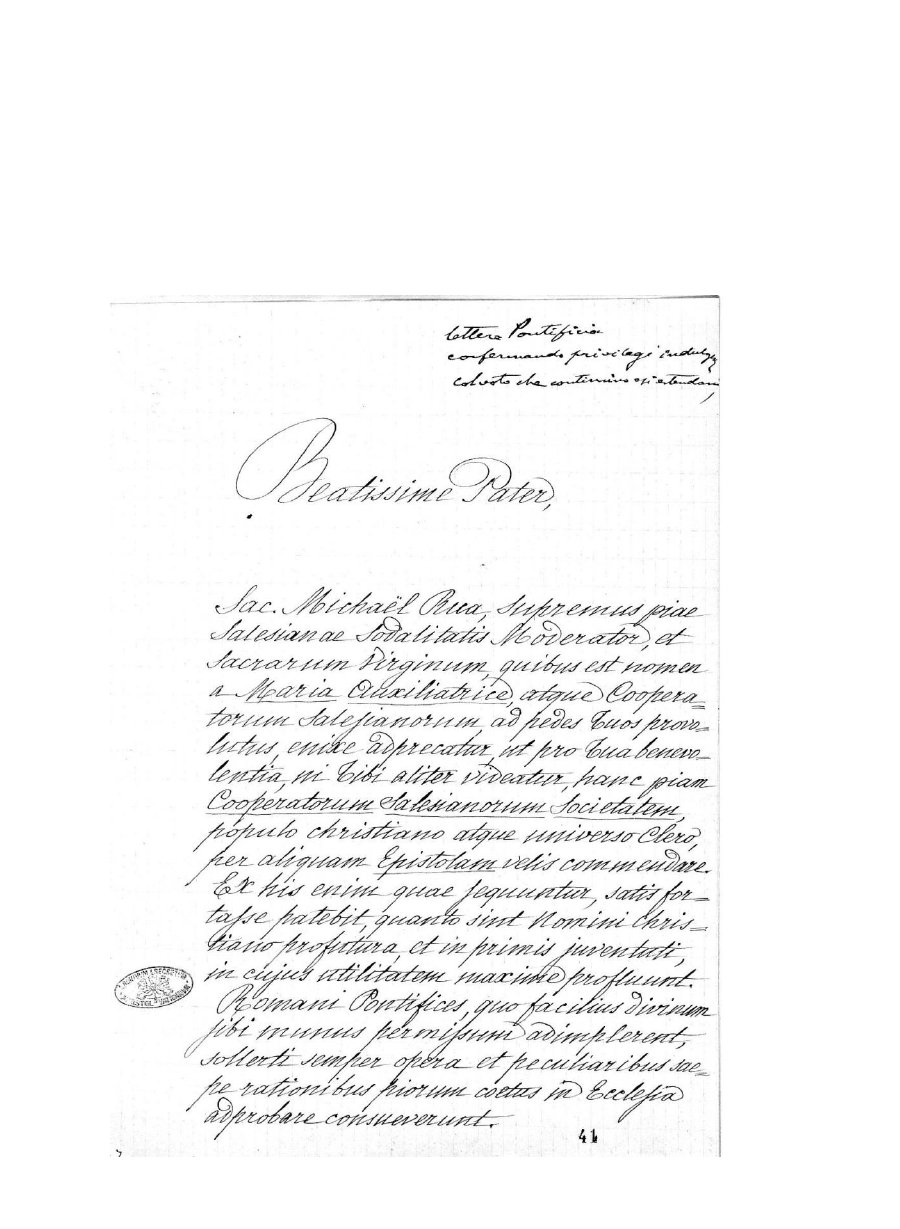 lettera Pontificia
confermando privilegi
che continuino
Beatissime Pater,
Sac. Michaël Rua, supremus piae
Salesianae Sodalitatis Moderator, et
Sacrarum Virginum, quibus est nomen
a Maria Auxiliatrice, atque Coopera=
torum Salesianorum, ad pedes Tuos provo=
lutus, enixe adprecatur, ut pro Tua benevo_
lentia, ni Tibi aliter videatur, hanc piam
Cooperatorum Salesianorum Societatem,
populo christiano atque universo Clero,
per aliquam Epistolam velis commendare.
Ex his enim quae sequuntur, satis for=
tasse patebit, quanto sint Nomini chris=
tiano profutura, et in primis juventuti,
in cujus utilitatem maxime profluunt.
Romani Pontifices, quo facilius divinum
sibi munus permissum adimplerent,
sollerti semper opera et peculiaribus sae=
pe rationibus piorum coetus in Ecclesia
adprobare consueverunt.
41